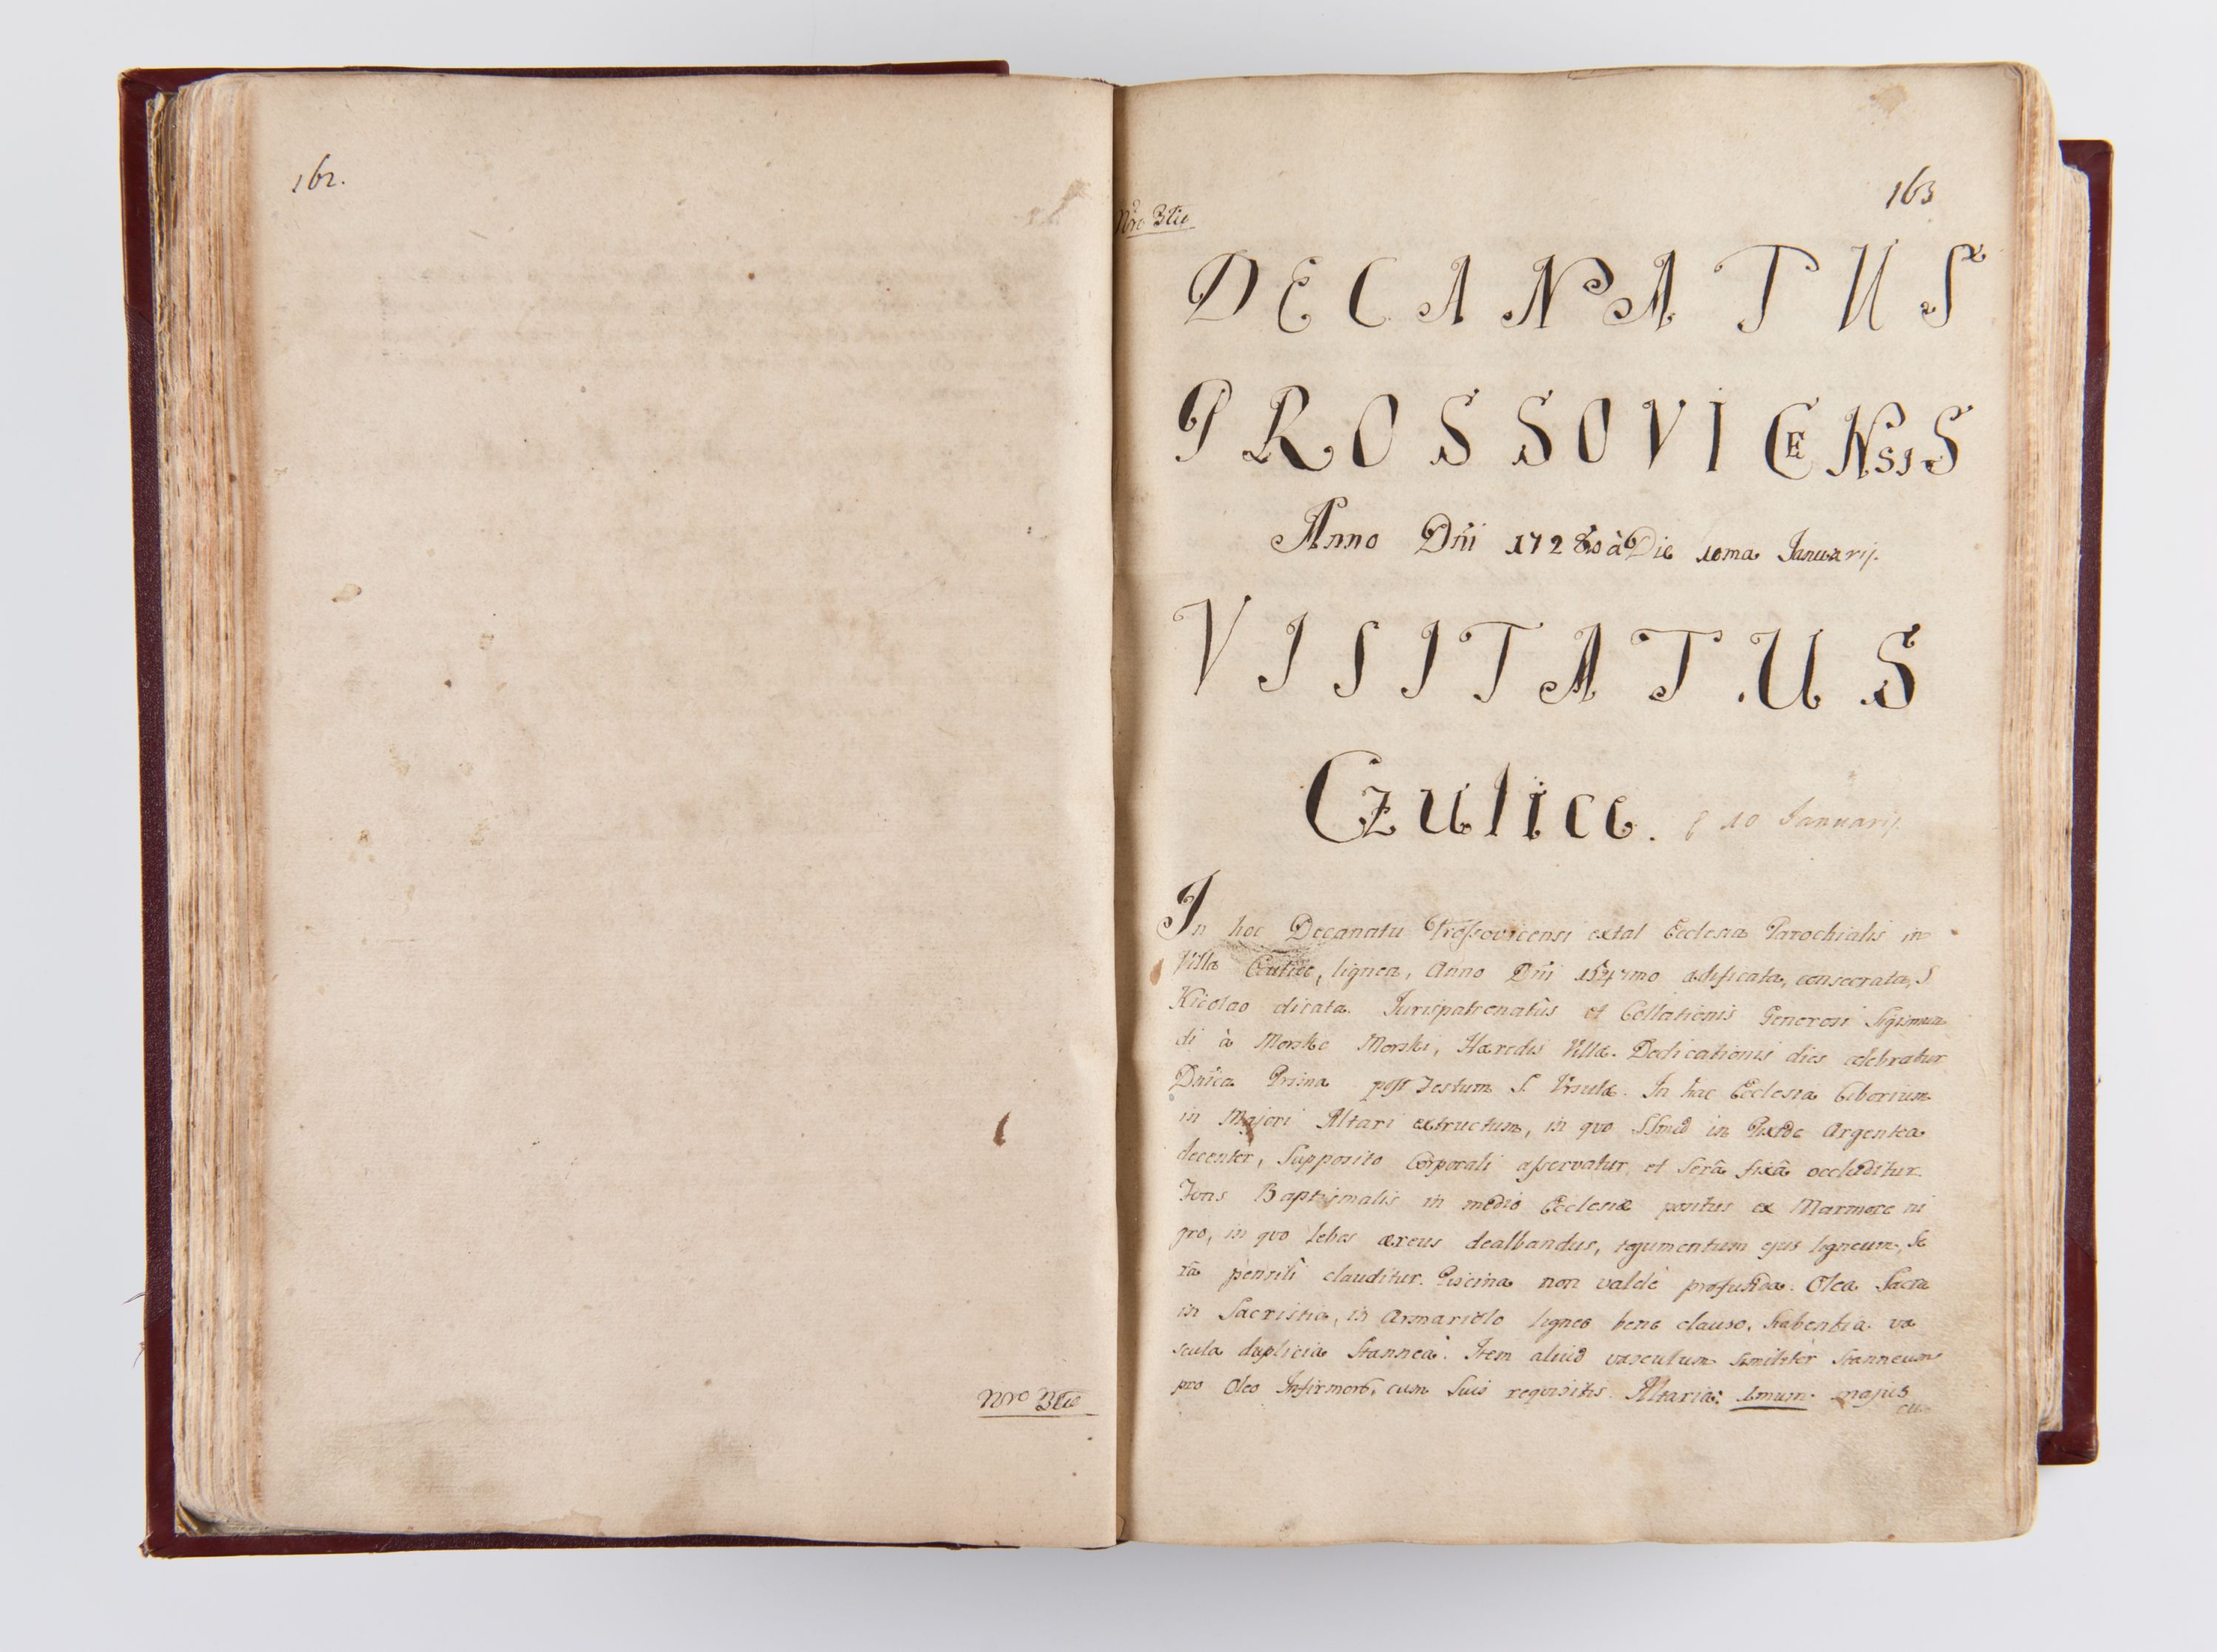 162.
Nro 3tio
163
Nro 3tio
DECANATUS
PROSSOVICENSIS
Anno Dñi 1728vo à Die 10ma Januarij.
VISITATUS
Czulice. 10 Januarij
In hoc Decanatu Prossovicensi extat Ecclesia Parochialis in
Villa Czulice, lignea, Anno Dñi ædificata, consecrata, S
Nicolao dicata. Jurispatronatûs et Collationis Generosi Sigismun
di à Morsko Morski, Hæredis Villæ. Dedicationis dies celebratur
Dñica Prima post Festum S. Ursulæ. In hac Ecclesia Ciborium
in Majori Altari extructum, in quo SSmū in Pixide Argentea
decentèr, supposito Corporali asservatur, et serâ fixâ occluditur.
Fons Baptismalis in medio Ecclesiæ positus ex Marmore ni
gro, in quo lebes æreus dealbandus, tegumentum ejus ligneum, se
râ pensili clauditur. Piscina non valdè profunda. Olea Sacra
in Sacristia, in Armariolo ligneo bene clauso, habentia va
scula duplicia Stannea. Item aliud vasculum similitèr Stanneum
pro Oleo Infirmorū, cum suis requisitis. Altaria: 1mum majus
cu